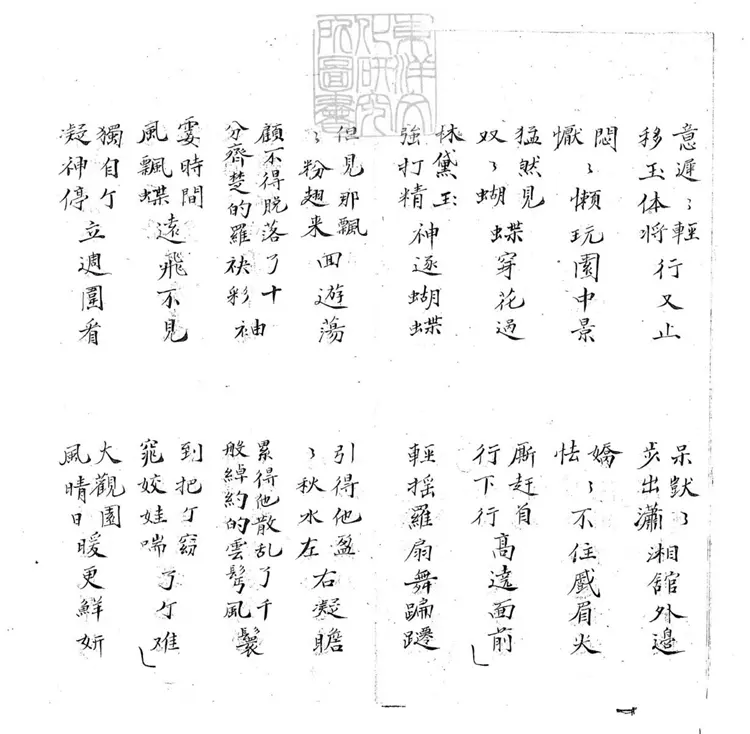 東洋文化研究所圖書
意遲〻輕移玉体將行又止
呆獃〻步出瀟湘舘外邊
悶懨〻懶玩園中景
嬌怯〻不住蹙眉尖
猛然見双〻蝴蝶穿花過
厮赶自行下行高遠面前
林黛玉強打精神逐蝴蝶
輕摇羅扇舞蹁躚
但見那飄〻粉翅来囬遊蕩
引得他盈〻秋水左右凝瞻
顧不得脱落了十分齊楚的羅袂彩袖
累得他散乱了千般綽約的雲髩風鬟
霎時間風飄蝶遠飛不見
到把个窈窕姣娃喘了个难
獨自个凝神停立週圍看
大觀園風晴日暖更鮮妍